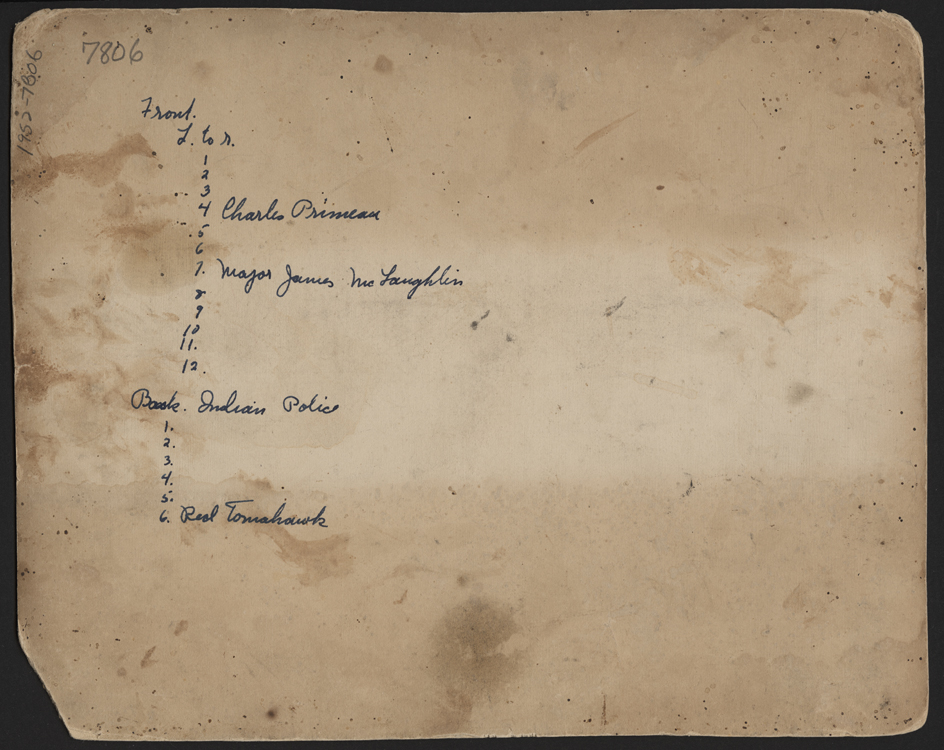 7806
1952-7806
Front.
L. to r.
1
2
3
4 Charles Primeau
5
6
7. Major James McLaughlin
8
9
10
11.
12.
Back. Indian Police
1.
2.
3.
4.
5.
6. Red Tomahawk